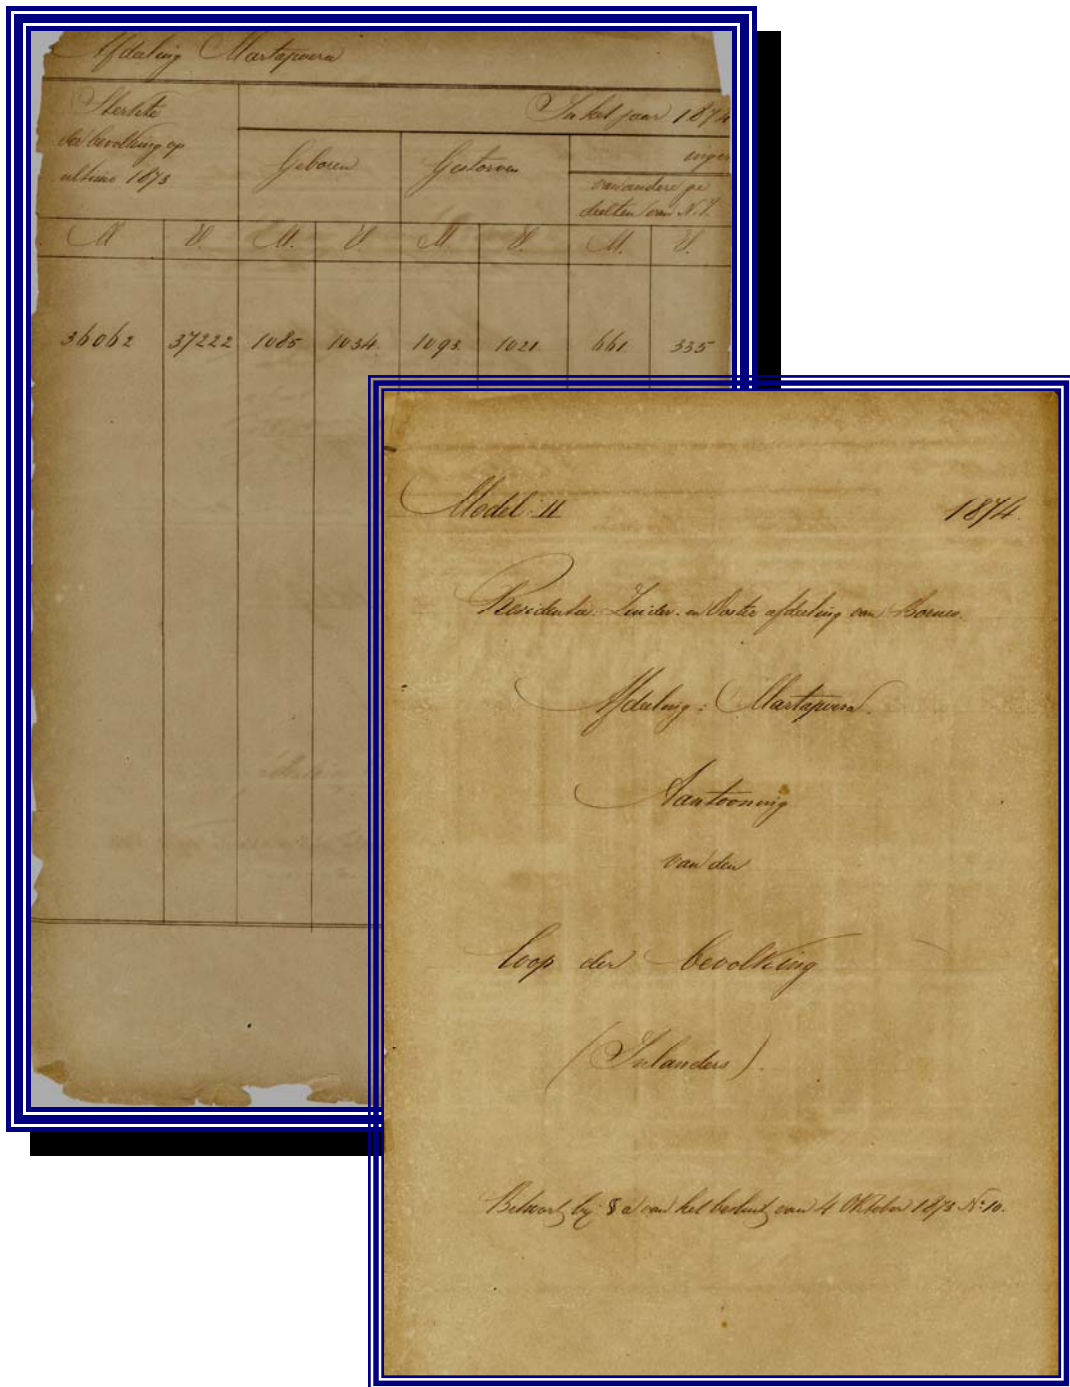 Afdeeling Martapoera
Sterkte
der bevolking op
ultimo 1873
In het jaar 1874
Geboren
Gestorven
inge
van andere ge
deelten van N.I.
M V. M. V. M V. M. V.
36062 37222 1085 1034. 1093. 1021. 661. 335
Model II 1874.
Residentie Zuider- en Ooster afdeeling van Borneo.
Afdeeling: Martapoera.
Aantooning
van den
loop der bevolking
(Inlanders).
Behoort bij § a van het besluit van 4 Oktober 1873 No 10.